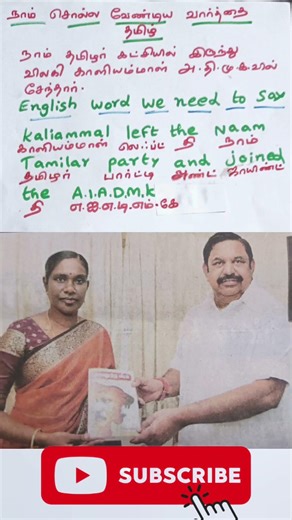 நாம் சொல்ல வேண்டிய வார்த்தை
தமிழ்
நாம் தமிழர் கட்சியில் இருந்து
விலகி காளியம்மாள் அ.தி.மு.கவில்
சேந்தார்.
English word we need to say
kaliammal left the Naam
காளியம்மாள் லெஃப்ட் தி நாம்
Tamilar party and joined
தமிழர் பார்ட்டி அண்ட் ஜாயிண்ட்
the A.I.A.D.M.K
தி எ.ஐ.எ.டி.எம்.கே
SUBSCRIBE